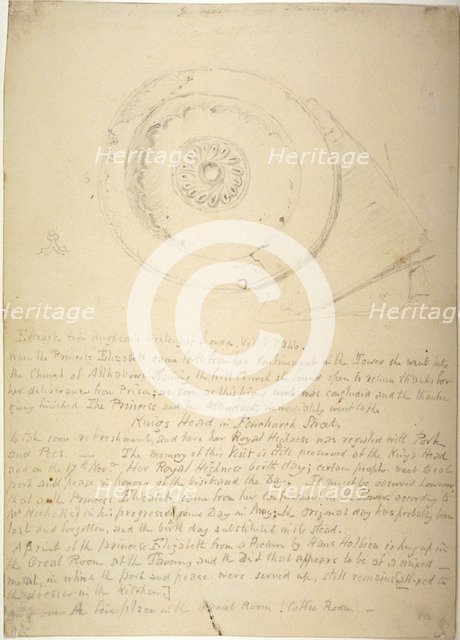 Heritage Heritage Heritage
Heritage Heritage
Extract from Hughson's History of London, Vol. 2. P.
When the Princess Elizabeth came forth from her Confinement in the Tower she went into
the Church of Allhallows the first Church she found open to return thanks for
her deliverance from Prison, as soon as this work was concluded and the thanks-
giving finished The Princess and her Attendants immediately went to the
Kings Head in Fenchurch Street,
to take some refreshment, and here her Royal Highness was regaled with Pork
and Pees. — The memory of this Visit is still preserved at the Kings Head
and on the 17th Novr. Her Royal Highness birth day; certain people meet to eat
pork and pease in honour of the visit and the Day. It must be observed however
that as the Princess Elizabeth came from her Confinement in the Tower according to
Mr Nichols Hist. in his progresses some Day in May; the Original day has probably been
lost and forgotten, and the birth day substituted in its stead.
A Print of the princess Elizabeth from a Picture by Hans Holbien is hung up in
the Great Room of the Tavern, and the Dish that appears to be of a mixed —
metal, in which the pork and pease were served up, still remains [affixed to
the dresser in the Kitchen.]
now over the fire place in the Great Room (Coffee Room) —